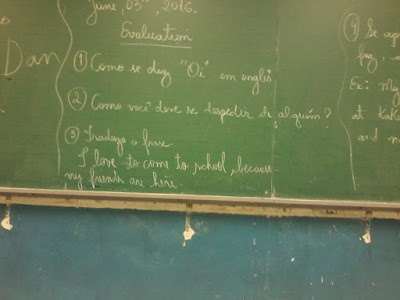 June, 03rd, 2016.
Evaluation
Dan
① Como se diz "Oi" em inglês
② Como você deve se despedir de alguém?
③ Traduza a frase
I love to come to school, because
my friends are here.
④ Se
Ex: My
at
and